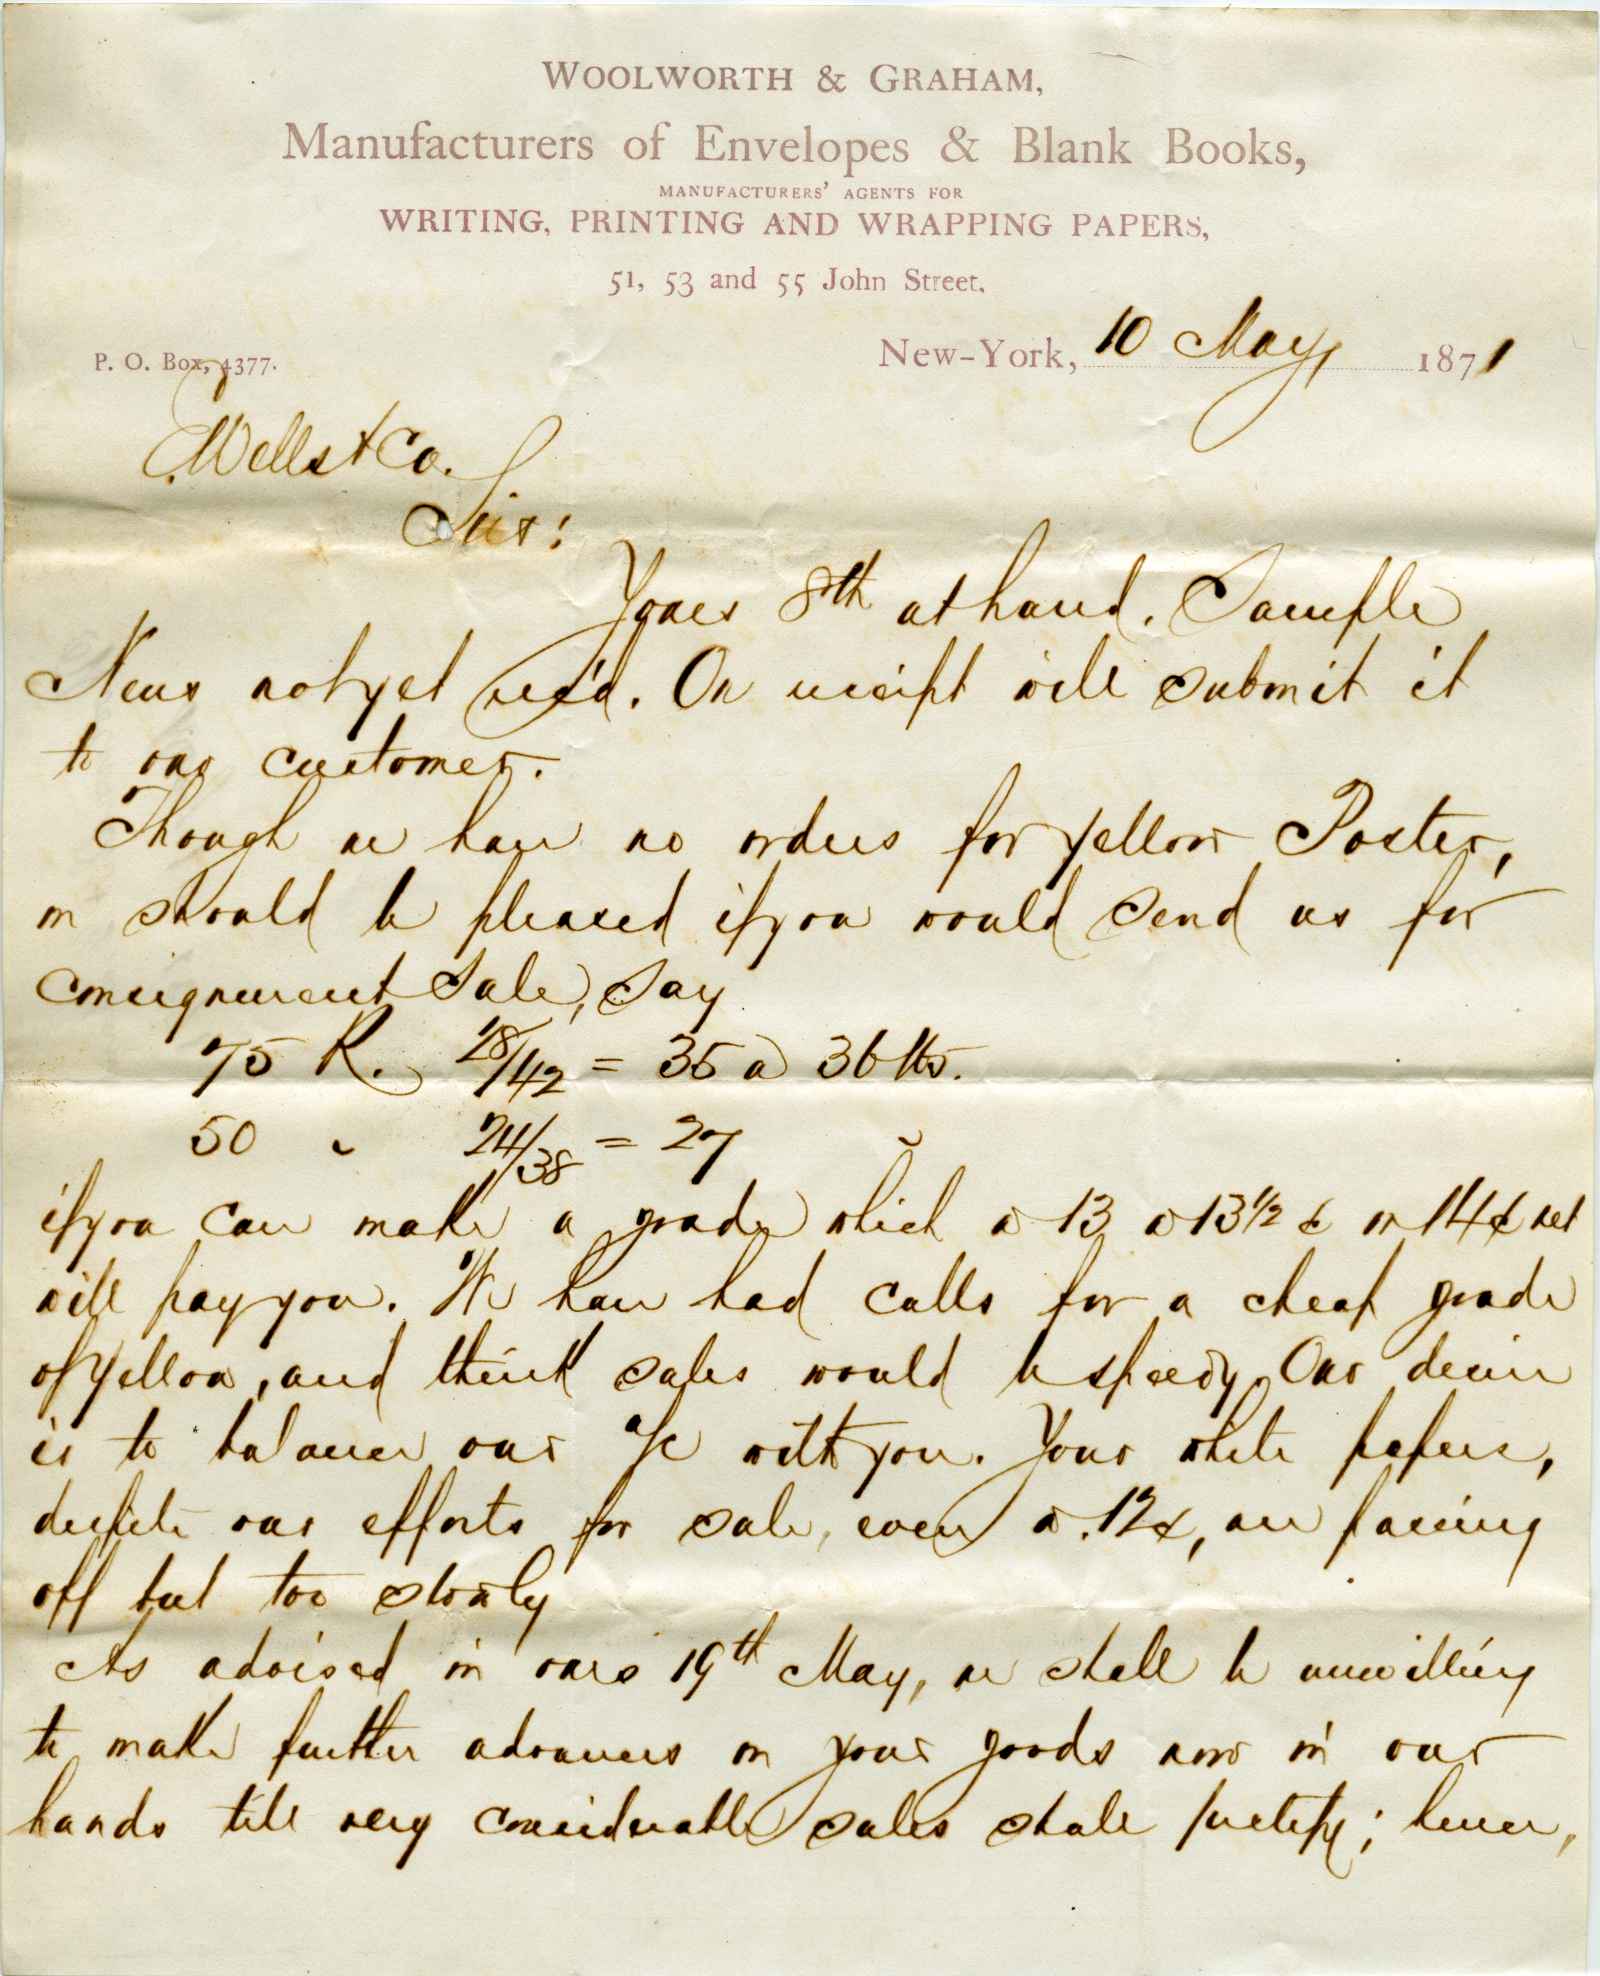 WOOLWORTH & GRAHAM,
Manufacturers of Envelopes & Blank Books,
MANUFACTURERS' AGENTS FOR
WRITING, PRINTING AND WRAPPING PAPERS,
51, 53 and 55 John Street.
New-York, 10 May, 1871
P. O. Box, 4377.
C. Wells & Co.
Sirs:
Yours 8th at hand. Sample
News not yet rec'd. On receipt will submit it
to our customer.
Though we have no orders for yellow Poster,
we should be pleased if you would send us for
consignment sale, say
75 R. 28/42 = 35 a 36 lbs.
50 " 24/38 = 27 "
if you can make a grade which a 13 a 13 1/2 ¢ or 14¢ net
will pay you. We have had calls for a cheap grade
of yellow, and think sales would be speedy. Our desire
is to balance our a/c with you. Your white papers,
despite our efforts for sale, even a .12¢, are passing
off but too slowly
As advised in ours 19th May, we shall be unwilling
to make further advances on your goods now in our
hands till very considerable sales shall justify; hence,